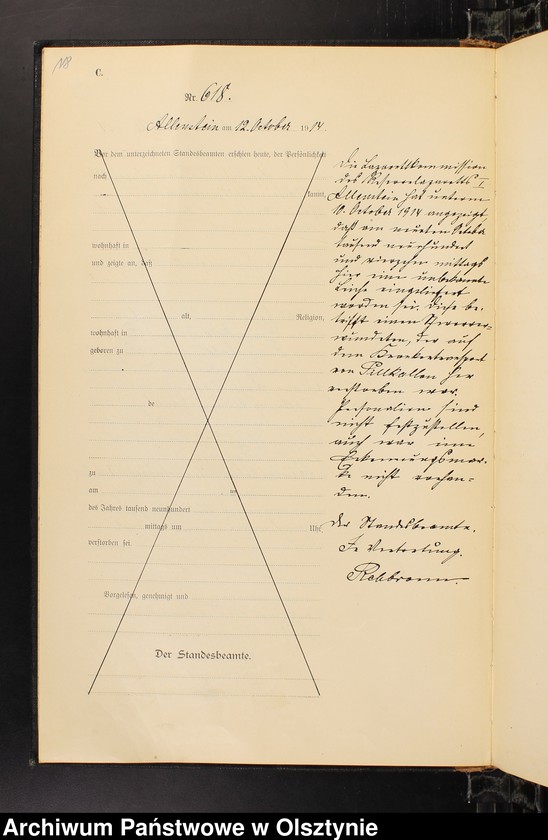 118
C.
Nr. 618.
Allenstein am 12. October 1914.
Vor dem unterzeichneten Standesbeamten erschien heute, der Persönlichkeit
nach
kannt,
wohnhaft in
und zeigte an, daß
alt, Religion,
wohnhaft in
geboren zu
de
zu
am
des Jahres tausend neunhundert
mittags um Uhr
verstorben sei.
Vorgelesen, genehmigt und
Der Standesbeamte.
Die Lazarettkommission
des Reservelazaretts I
Allenstein hat unterm
10. October 1914 angezeigt,
daß am neunten October
tausend neunhundert
und vierzehn mittags
hier eine unbekannte
Leiche eingeliefert
worden sei. Diese be-
trifft einen Schwerver-
wundeten, der auf
dem Krankentransport
von Pillkallen her
verstorben war.
Personalien sind
nicht festzustellen,
auch war eine
Erkennungsmar-
ke nicht vorhan-
den.
Der Standesbeamte.
In Vertretung.
Archiwum Państwowe w Olsztynie